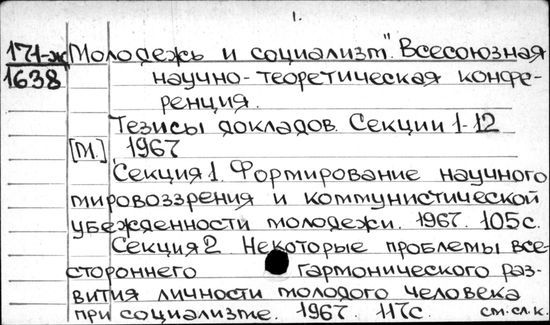 1.
171-ж Молодежь и социализм". Всесоюзная
1638 научно-теоретическая конфе-
ренция.
Тезисы докладов. Секции 1-12
[М.], 1967
Секция 1. Формирование научного
мировоззрения и коммунистической
убежденности молодежи. 1967. 105с.
Секция 2. Некоторые проблемы все-
стороннего гармонического раз-
вития личности молодого человека
при социализме. 1967. 117с. см.сл.к.